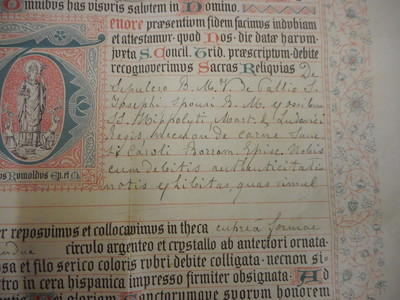 Omnibus has visuris salutem in Domino.
Tenore præsentium fidem facimus indubiam
et attestamur, quod Nos, die datæ harum,
juxta S. Concil. Trid. præscriptum debite
recognoverimus Sacras Reliquias De
Sepulcro B. M. V. de Pallio S.
Josephi, Sponsi B. M. V
SS. Hippolyti Mart. & Ludovici
Regis, necnon de carne Sanc
ti Caroli Borrom. Episc. Nobis
cum debitis authenticitatis
notis exhibitas, quas simul
Rumoldus Ep. et M.
er reposuimus et collocavimus in theca cuprea formae
circulo argenteo et crystallo ab anteriori ornata,
sa et filo serico coloris rubri debite colligata, necnon si-
tro in cera hispanica impresso firmiter obsignata. Ad
Dei gloriam Sanctorumque suorum honorem